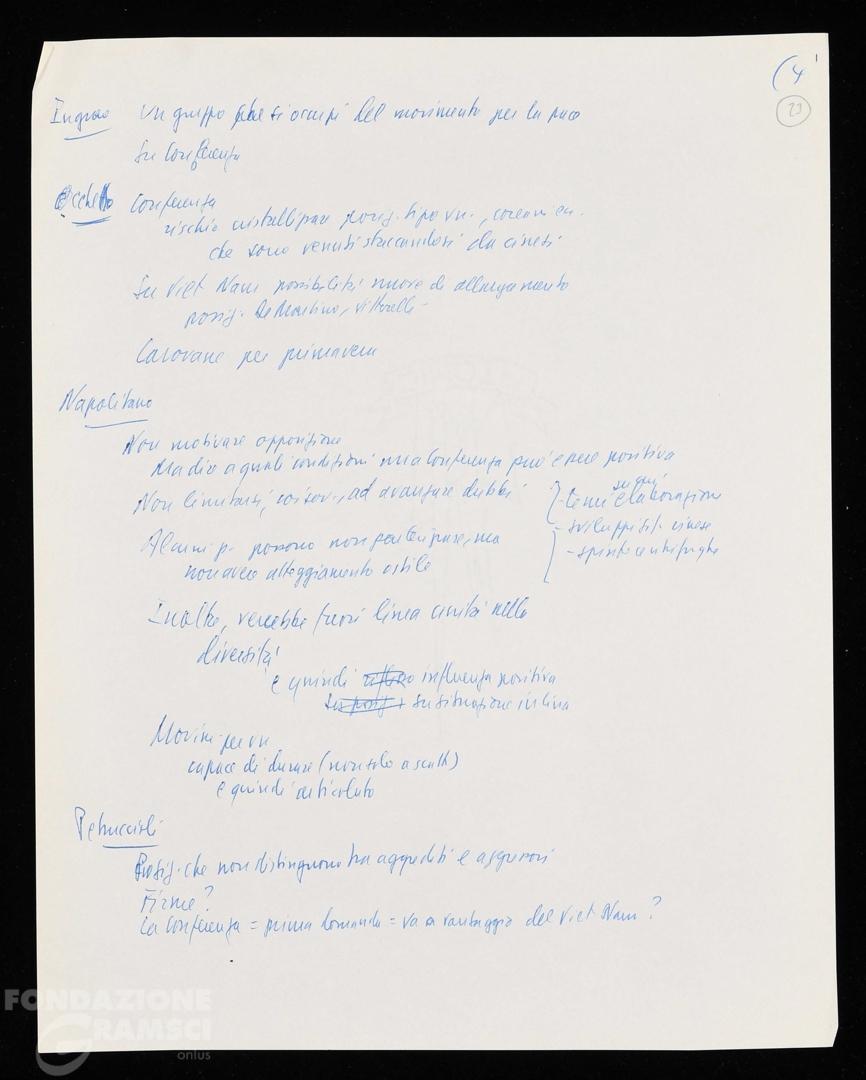 (4
23
Ingrao Un gruppo che si occupi del movimento per la pace
Su Conferenza
Occhetto Conferenza
rischio cristallizzare posiz. tipo vn., coreani ecc.
che sono venuti staccandosi da cinesi
Su Viet Nam possibilità nuove di allargamento
posiz. De Martino, Vittorelli
Carovane per primavera
Napolitano
Non motivare opposizione
Ma dire a quali condizioni una Conferenza può essere positiva
Non limitarsi, ad avanzare dubbi
su cui
- temi elaborazione
- sviluppi sit. cinese
- spinte centrifughe
Alcuni p. possono non partecipare, ma
non avere atteggiamento ostile
Inoltre, verrebbe fuori linea unità nella
diversità
e quindi influenza positiva
su situazione in Cina
Movim. per vn
capace di durare (non solo a scatti)
e quindi articolato
Petruccioli
Posiz. che non distinguono tra aggrediti e aggressori
Firme?
La Conferenza = prima domanda = va a vantaggio del Viet Nam?
FONDAZIONE
GRAMSCI
onlus